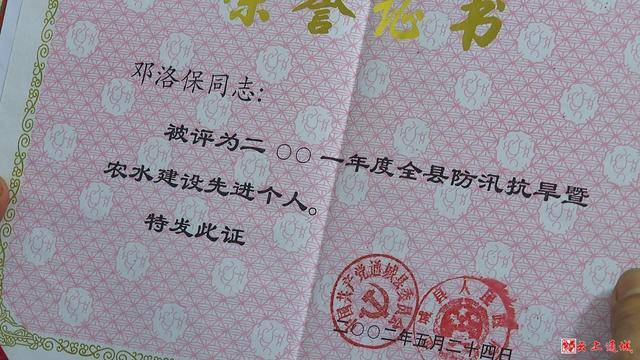 荣誉证书
邓洛保同志:
被评为二〇〇一年度全县防汛抗旱暨
农水建设先进个人。
特发此证
中国共产党通城县委员会
县人民政府
二〇〇二年五月二十四日
云上通城